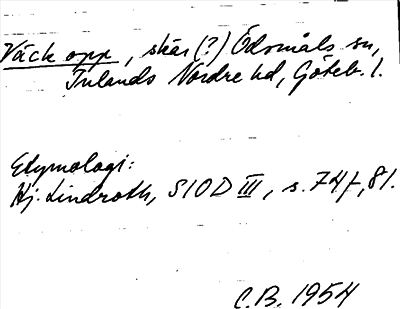 Väck opp, skär (?) Ödsmåls sn,
Inlands Nordre hd, Göteb. l.
Etymologi:
Hj. Lindroth, SIOD III, s. 74 f, 81.
C.B. 1954